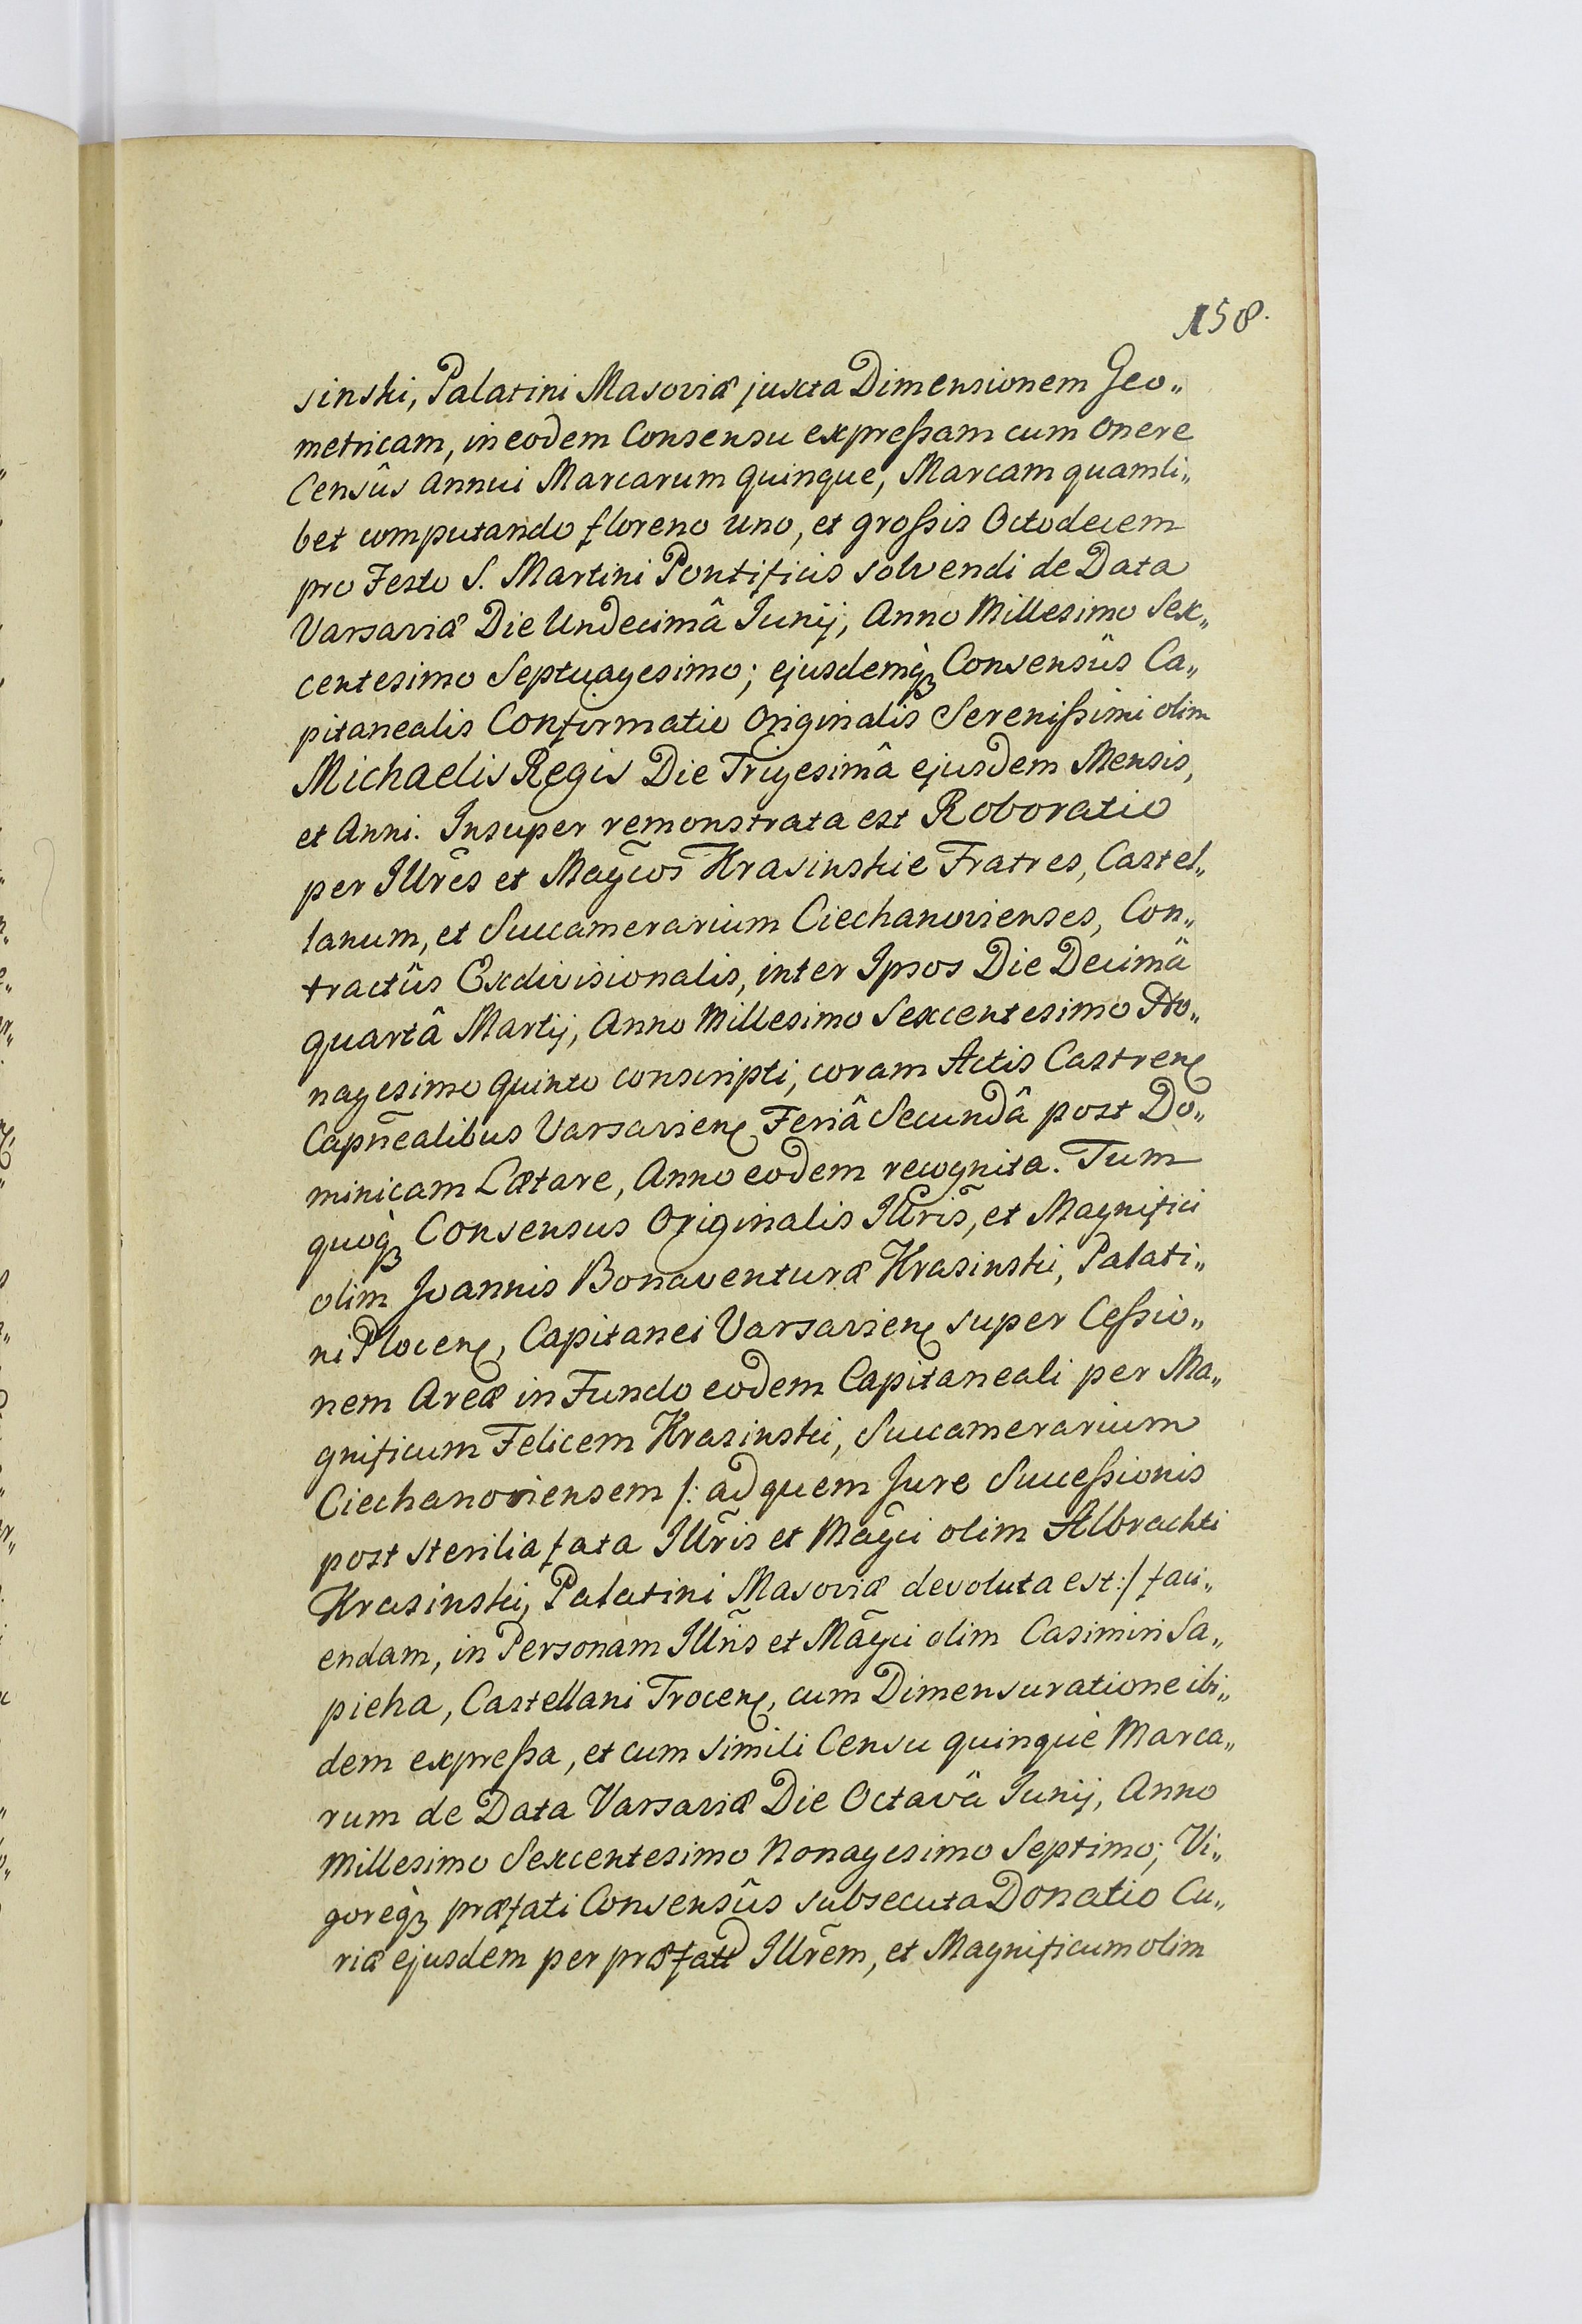 158.
sinski, Palatini Masoviæ juxta Dimensionem Geo„
metricam, in eodem Consensu expreßam cum Onere
Censûs Annui Marcarum quinque, Marcam quamli„
bet computando floreno uno, et großis Octodecem
pro Festo S. Martini Pontificis solvendi de Data
Varsaviæ Die Undecimâ Junij, Anno Millesimo Sex„
centesimo Septuagesimo; ejusdemq̀ꝫ Consensûs Ca„
pitanealis Confirmatio Originalis Serenißimi olim
Michaelis Regis Die Trigesimâ ejusdem Mensis,
et Anni. Insuper remonstrata est Roboratio
per Illr̃es et Magc̃os Krasinskie Fratres, Castel„
lanum, et Succamerarium Ciechanovienses, Con„
tractûs Exdivisionalis, inter Ipsos Die Decimâ
quartâ Martij, Anno Millesimo Sexcentesimo No„
nagesimo quinto conscripti, coram Actis Castren̨
Capñealibus Varsavien̨ Feriâ Secundâ post Do„
minicam Lætare, Anno eodem recognita. Tum
quoq̀ꝫ Consensus Originalis Illr̃is, et Magnifici
olim Joannis Bonaventuræ Krasinski, Palati„
ni Plocen̨, Capitanei Varsavien̨ super Ceßio„
nem Areæ in Fundo eodem Capitaneali per Ma„
gnificum Felicem Krasinski, Succamerarium
Ciechanoviensem /: ad quem Jure Succeßionis
post sterilia fata Illr̃is et Mag̃ci olim Albrachti
Krasinski, Palatini Masoviæ devoluta est :/ faci„
endam, in Personam Illr̃is et Mag̃ci olim Casimiri Sa„
pieha, Castellani Trocen̨, cum Dimensuratione ibi„
dem expreßa, et cum simili Censu quinque Marca„
rum de Data Varsaviæ Die Octavâ Junij, Anno
Millesimo Sexcentesimo Nonagesimo Septimo; Vi„
goreq̀ꝫ præfati Consensûs subsecuta Donatio Cu„
riæ ejusdem per præfat Illr̃em, et Magnificum olim